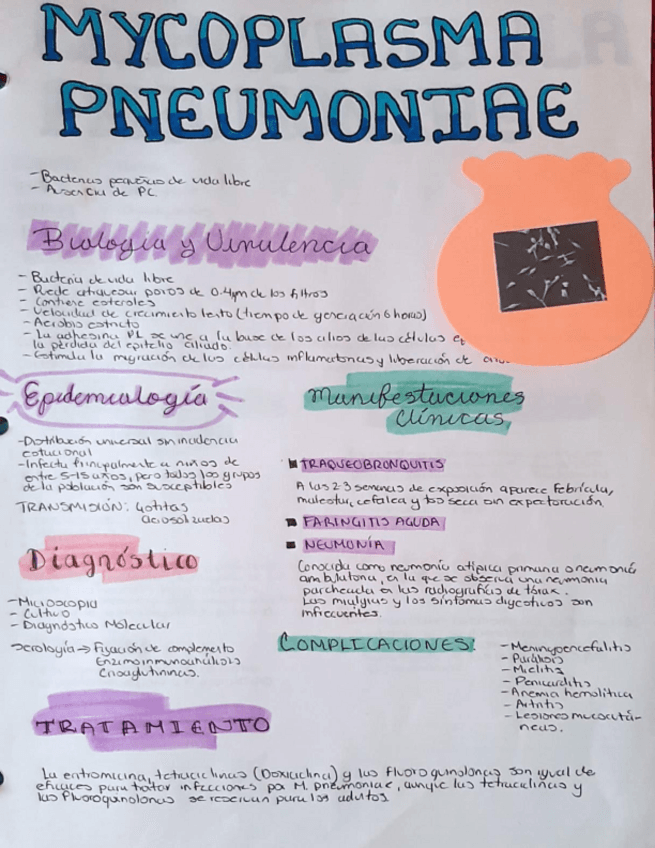 MYCOPLASMA
PNEUMONIAE
- Bacterias pequeñas de vida libre
- Ausencia de PC
Biología y Virulencia
- Bacteria de vida libre
- Puede atravesar poros de 0.4µm de los filtros
- Contiene esteroles
- Velocidad de crecimiento lento (tiempo de generación 6 horas)
- Aerobio estricto
- La adhesina P1 se une a la base de los cilios de las células
la pérdida del epitelio ciliado.
- Estimula la migración de las células inflamatorias y liberación de
Epidemiología
- Distribución universal sin incidencia
estacional
- Infecta principalmente a niños de
entre 5-15 años, pero todos los grupos
de la población son susceptibles
TRANSMISIÓN: Gotitas
aerosolizadas
Diagnóstico
- Microscopia
- Cultivo
- Diagnóstico Molecular
Serología → Fijación de complemento
Enzimoinmunoanálisis
Crioaglutininas.
Manifestaciones
Clínicas
TRAQUEOBRONQUITIS
A las 2-3 semanas de exposición aparece febrícula,
malestar, cefalea y tos seca sin expectoración
FARINGITIS AGUDA
NEUMONÍA
Conocida como neumonía atípica primaria o neumonía
ambulatoria, en la que se observa una neumonía
parcheada en las radiografías de tórax.
Las mialgias y los síntomas digestivos son
infrecuentes.
COMPLICACIONES:
- Meningoencefalitis
- Parálisis
- Mielitis
- Pericarditis
- Anemia hemolítica
- Artritis
- Lesiones mucocutá-
neas.
TRATAMIENTO
La eritromicina, tetraciclinas (Doxiciclina) y las fluoroquinolonas son igual de
eficaces para tratar infecciones por M. pneumoniae, aunque las tetraciclinas y
las fluoroquinolonas se reservan para los adultos.